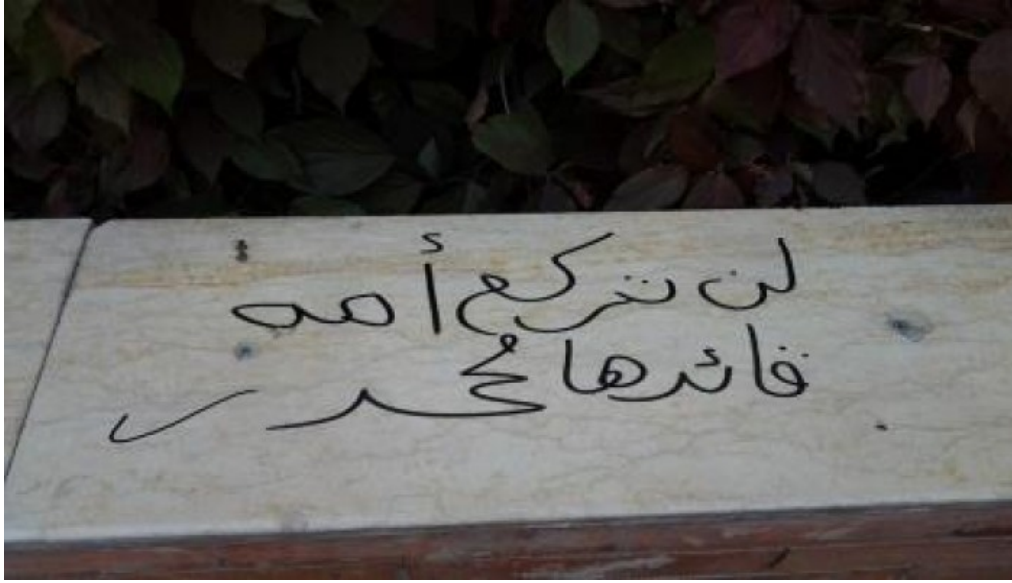 لن نركع أمة
قائدها محمد